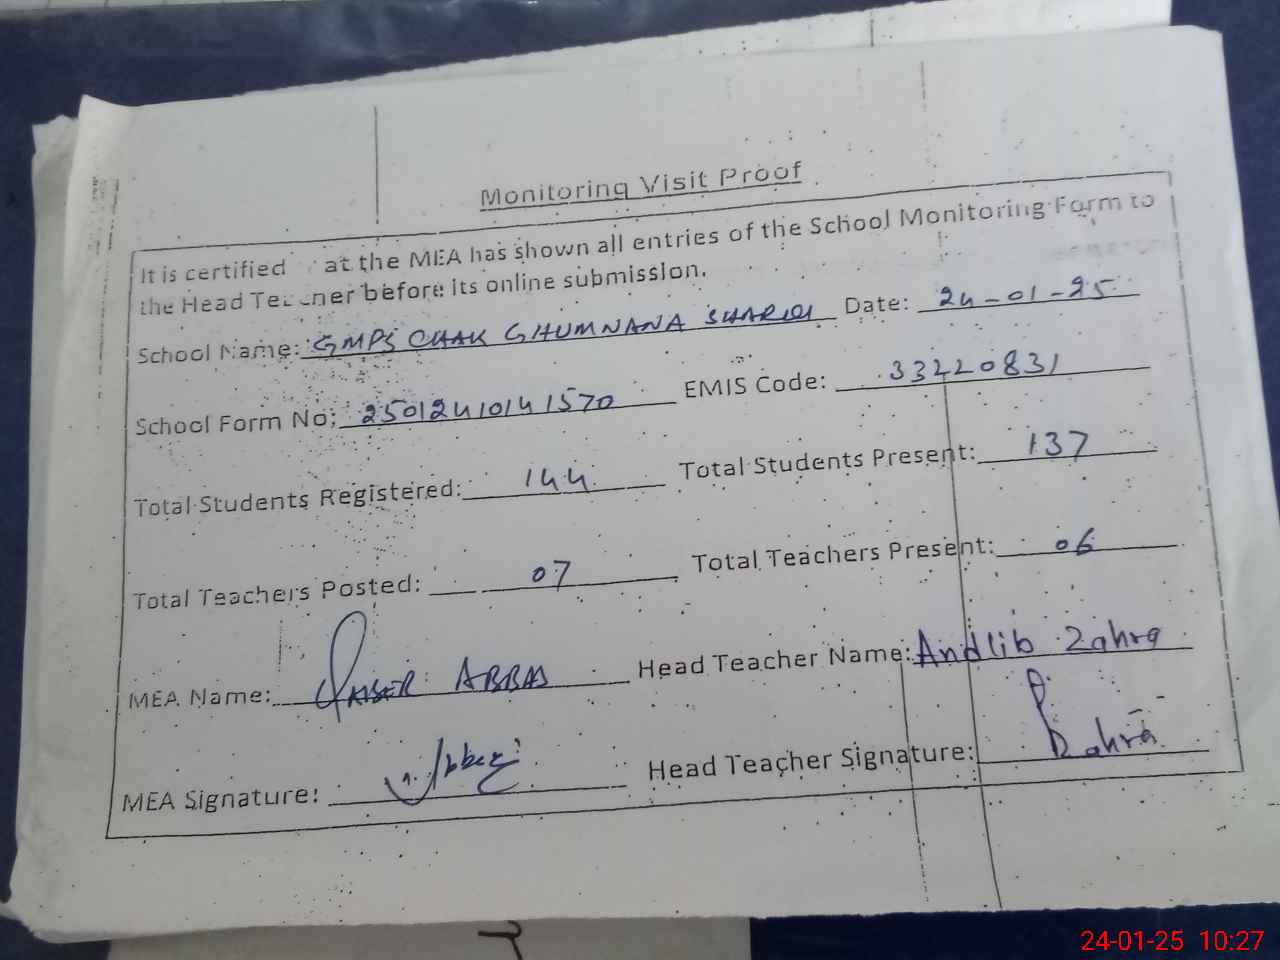 Monitoring Visit Proof
It is certified at the MEA has shown all entries of the School Monitoring Form to
the Head Teacher before its online submission.
School Name: GMPS CHAK GHUMNANA SHARQI Date: 24-01-25
School Form No: 25012410141570 EMIS Code: 33220831
Total Students Registered: 144 Total Students Present: 137
Total Teachers Posted: 07 Total Teachers Present: 06
MEA Name: QAISER ABBAS Head Teacher Name: Andlib Zahra
MEA Signature: Head Teacher Signature: Zahra
24-01-25 10:27